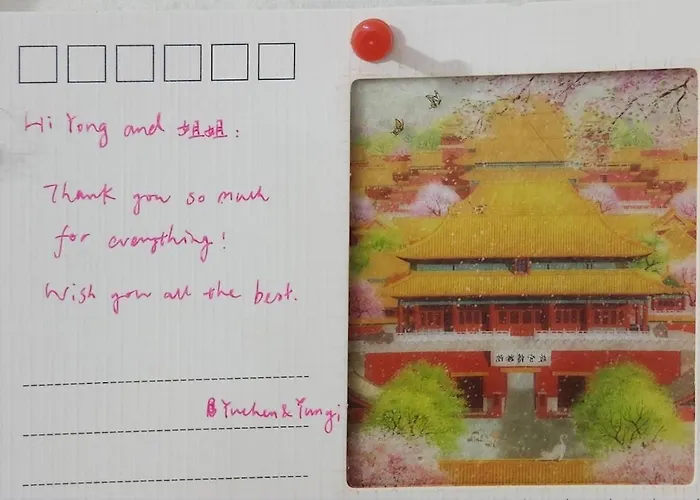 Hi Yong and 姐姐:
Thank you so much
for everything!
Wish you all the best.
Yuchen & Yungi
故宫博物院